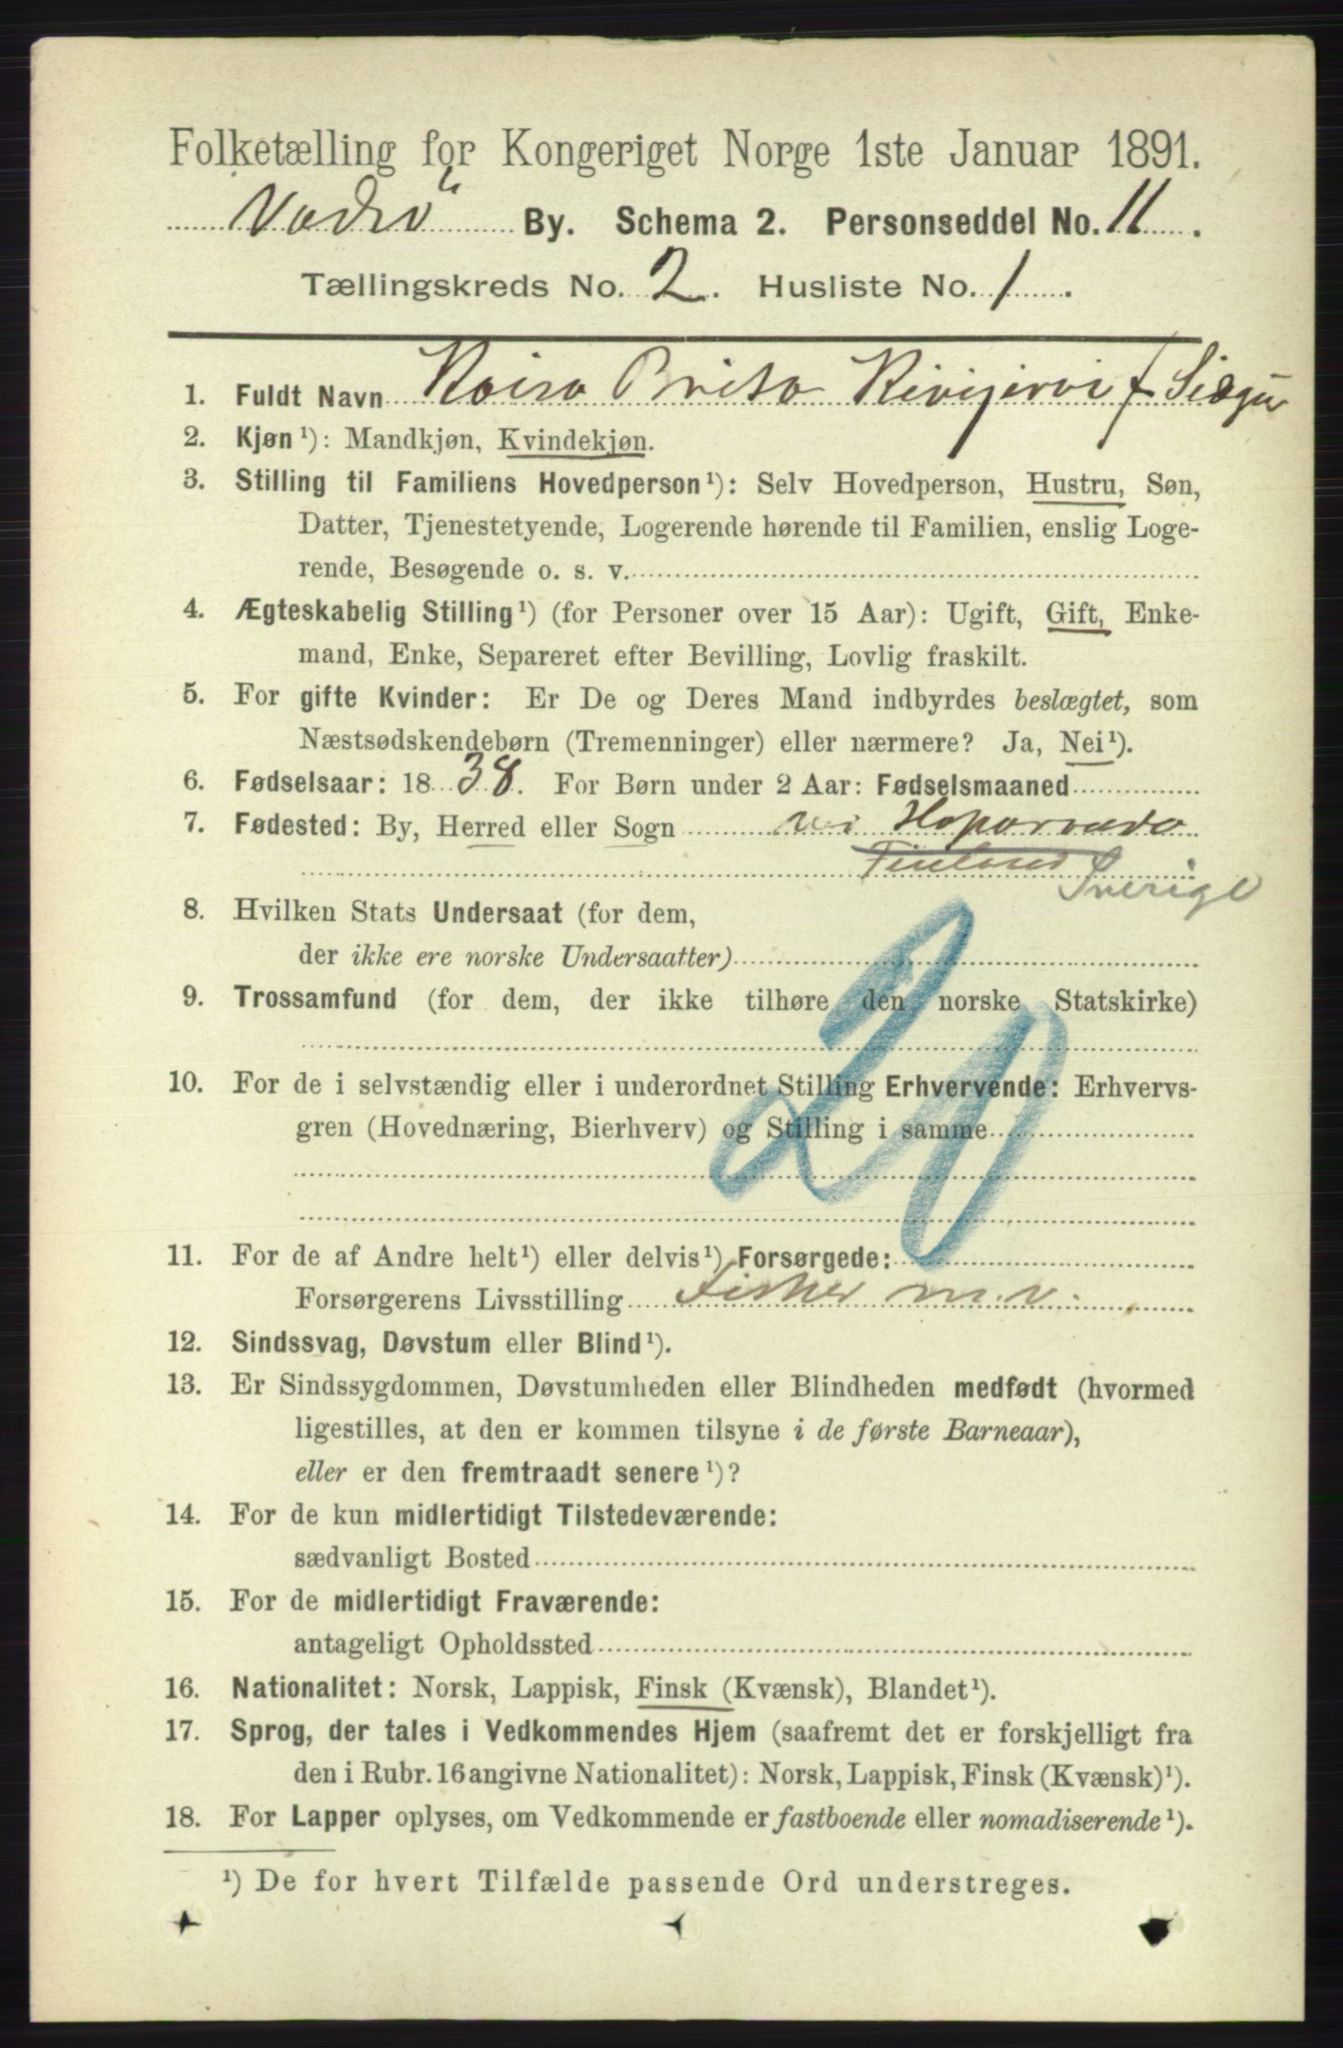 Folketælling for Kongeriget Norge 1ste Januar 1891.
Vadsö By. Schema 2. Personseddel No. 11.
Tællingskreds No. 2. Husliste No. 1.
1. Fuldt Navn Kaisa Brita Kivijervi f
2. Kjøn¹): Mandkjøn, Kvindekjøn.
3. Stilling til Familiens Hovedperson¹): Selv Hovedperson, Hustru, Søn,
Datter, Tjenestetyende, Logerende hørende til Familien, enslig Loge-
rende, Besøgende o. s. v.
4. Ægteskabelig Stilling¹) (for Personer over 15 Aar): Ugift, Gift, Enke-
mand, Enke, Separeret efter Bevilling, Lovlig fraskilt.
5. For gifte Kvinder: Er De og Deres Mand indbyrdes beslægtet, som
Næstsødskendebørn (Tremenninger) eller nærmere? Ja, Nei¹).
6. Fødselsaar: 18 38. For Børn under 2 Aar: Fødselsmaaned
7. Fødested: By, Herred eller Sogn Haparanda
Finland Sverige
8. Hvilken Stats Undersaat (for dem,
der ikke ere norske Undersaatter)
20
9. Trossamfund (for dem, der ikke tilhøre den norske Statskirke)
10. For de i selvstændig eller i underordnet Stilling Erhvervende: Erhvervs-
gren (Hovednæring, Bierhverv) og Stilling i samme
11. For de af Andre helt¹) eller delvis¹) Forsørgede:
Forsørgerens Livsstilling Fisker m.v.
12. Sindssvag, Døvstum eller Blind¹).
13. Er Sindssygdommen, Døvstumheden eller Blindheden medfødt (hvormed
ligestilles, at den er kommen tilsyne i de første Barneaar),
eller er den fremtraadt senere¹)?
14. For de kun midlertidigt Tilstedeværende:
sædvanligt Bosted
15. For de midlertidigt Fraværende:
antageligt Opholdssted
16. Nationalitet: Norsk, Lappisk, Finsk (Kvænsk), Blandet¹).
17. Sprog, der tales i Vedkommendes Hjem (saafremt det er forskjelligt fra
den i Rubr. 16 angivne Nationalitet): Norsk, Lappisk, Finsk (Kvænsk)¹).
18. For Lapper oplyses, om Vedkommende er fastboende eller nomadiserende¹).
¹) De for hvert Tilfælde passende Ord understreges.